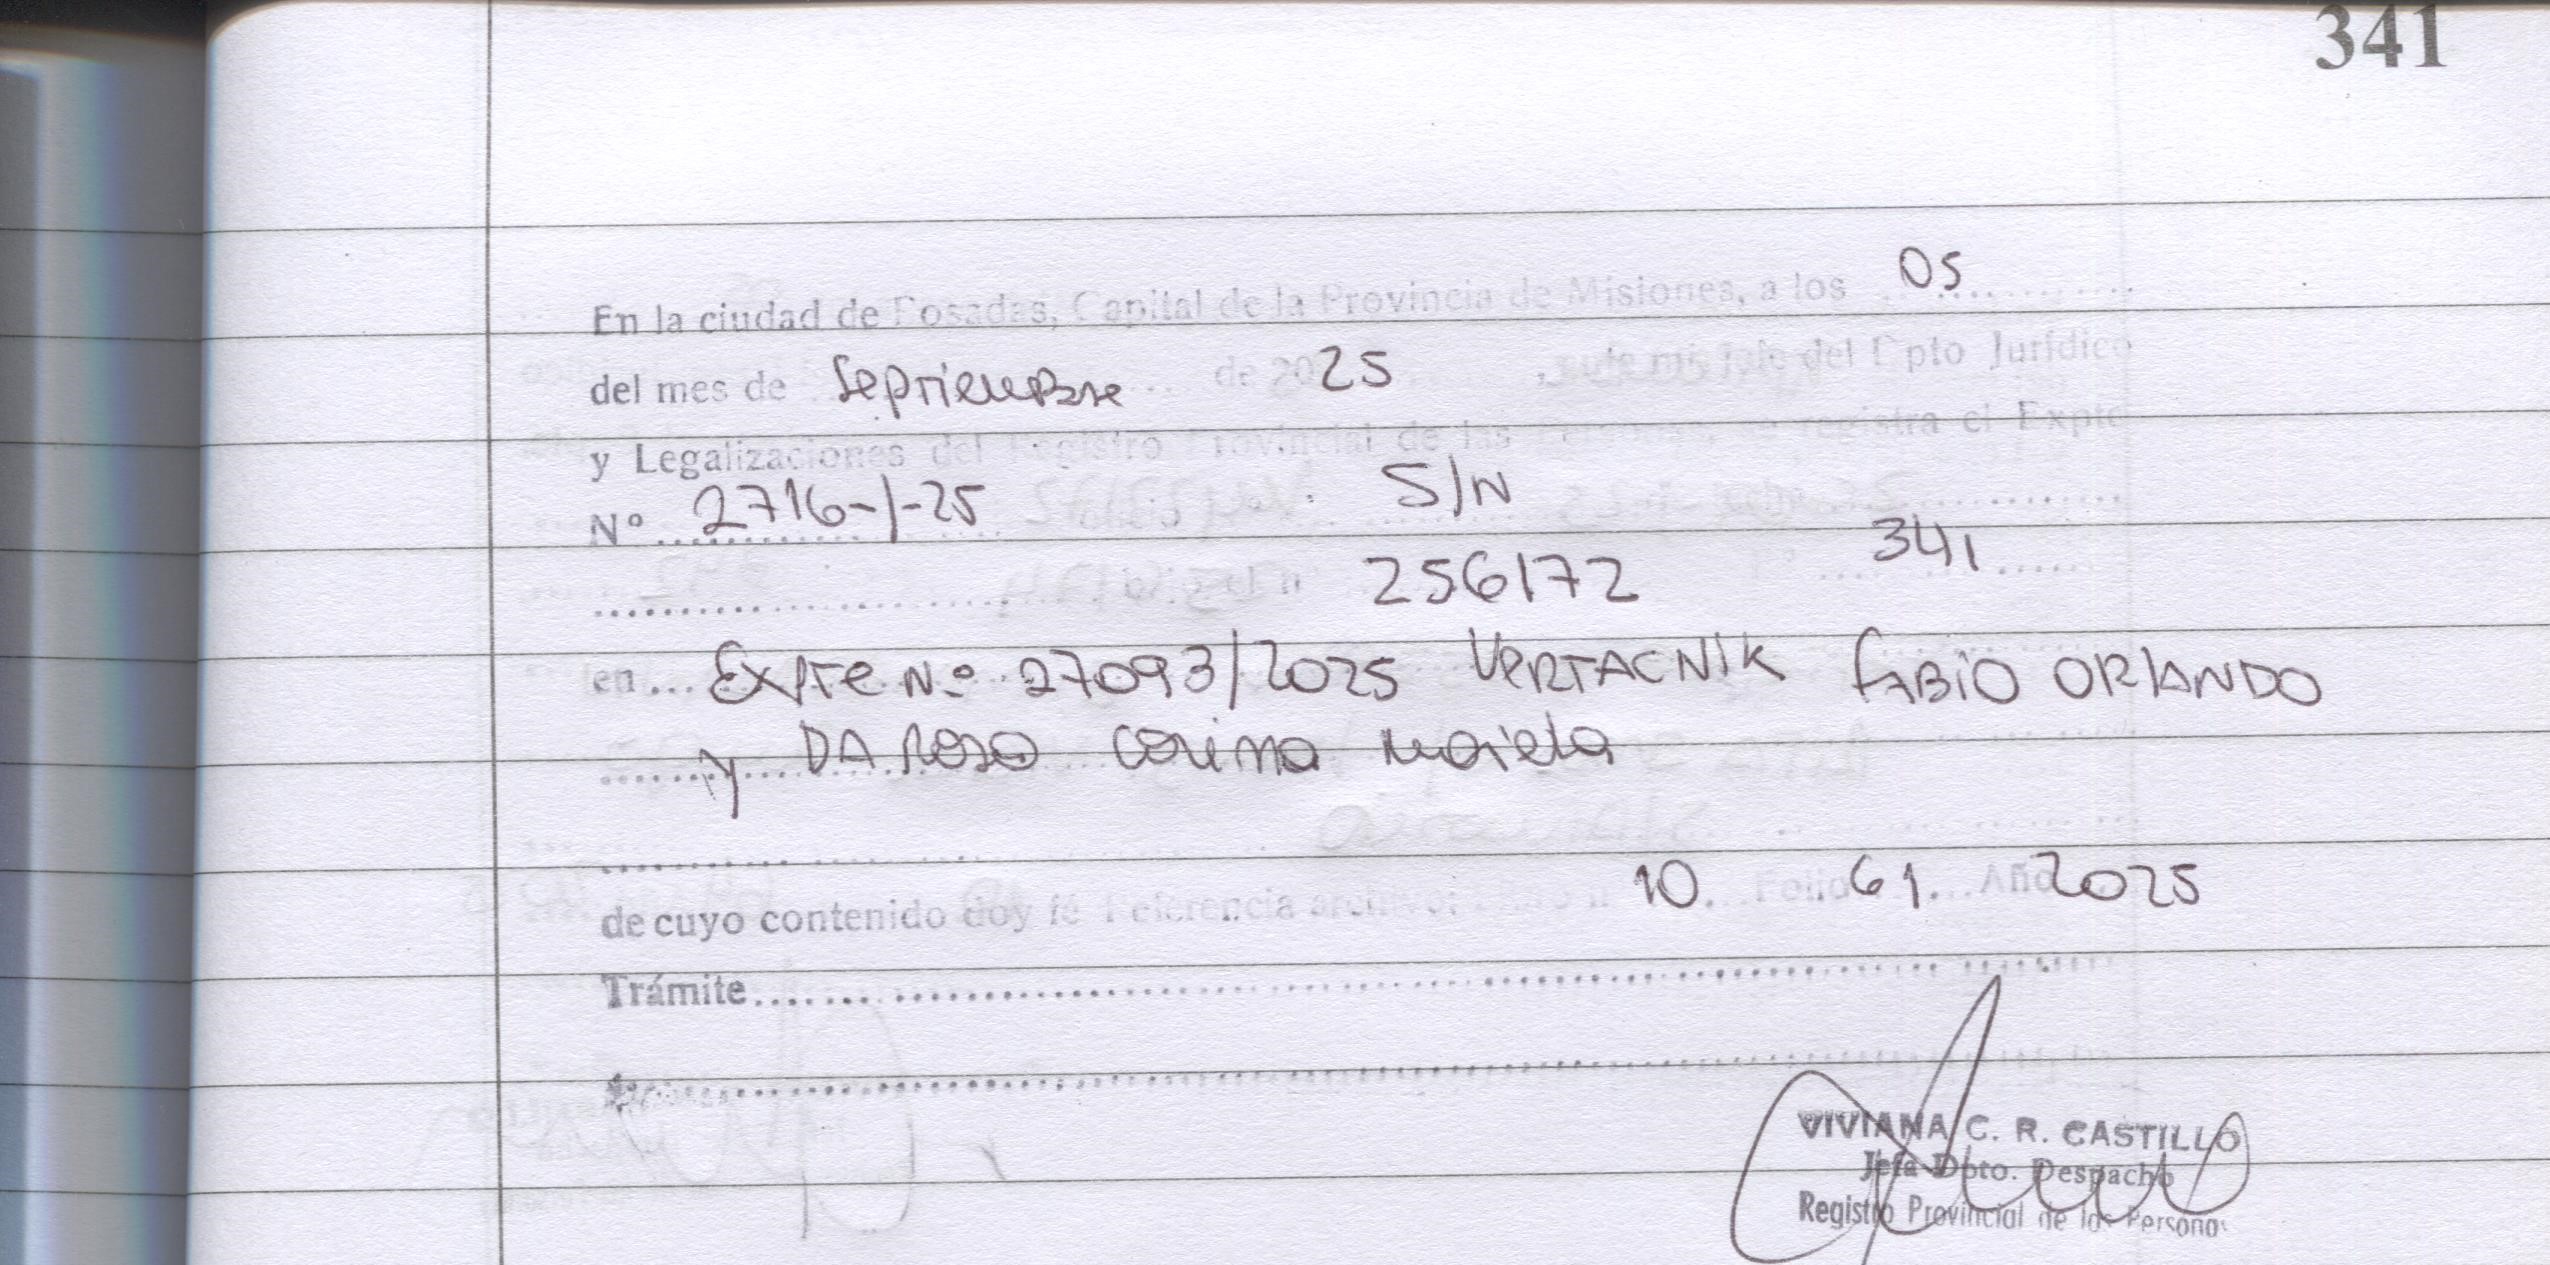 341
En la ciudad de Posadas, Capital de la Provincia de Misiones, a los 05
del mes de Septiembre de 20 25 , ante mi jefe del Dpto Jurídico
y Legalizaciones del Registro Provincial de las Personas, se registra el Expte
Nº 2716-1-25 S/N
256172 341
en... Expte Nº 27093/2025 VERTACNIK FABIO ORLANDO
y DA ROSA Corina
de cuyo contenido doy fé Referencia archivo: 10. Folio 61. Año 2025
Trámite
VIVIANA C. R. CASTILLO
Jefa Dpto. Despacho
Registro Provincial de las Personas